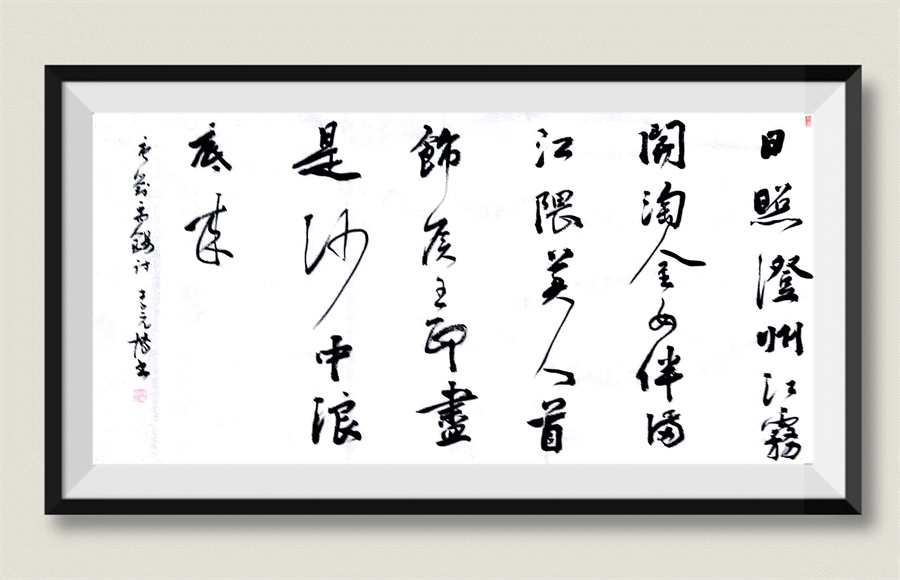 日照澄州江霧
開淘金女伴滿
江隈美人首
飾侯王印盡
是沙中浪
底来
唐劉禹錫詩 元博书